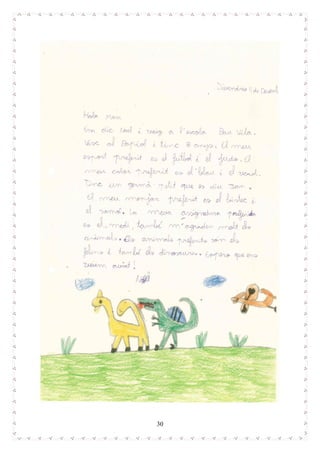 Divendres 11 de Desemb
Hola Marc
Em dic Unai i vaig a l'escola Pau Vila.
Visc al Papiol i tinc 8 anys. El meu
esport preferit es el futbol i el judo. El
meu color preferit es el blau i el verd.
Tinc un germà petit que es diu Jan.
El meu menjar preferit es el bistec i
el ramen. La meva assignatura preferida
es el medi, també m'agraden molt els
animals. Els animals preferits són els
felins i també els dinosaures. Espero que ens
veiem aviat!
30